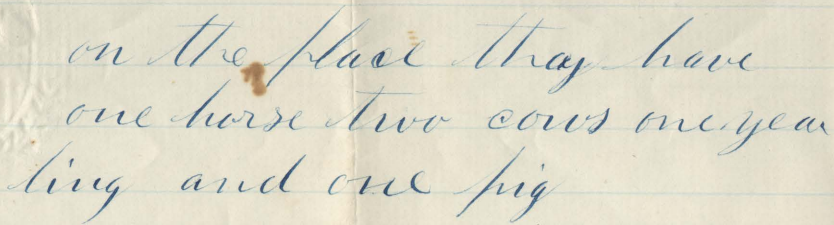 on the place thay have
one horse two cows one year
ling and one pig